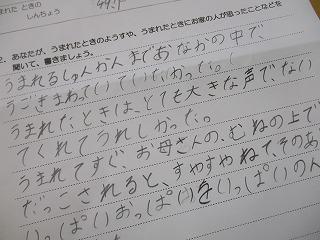 まれたときの
しんちょう
2. あなたが、うまれたときのようすや、うまれたときにお家の人が思ったことなどを
聞いて、書きましょう。
うまれるしゅんかんまでおなかの中で、
うごきまわっていていたかった。
うまれた、ときは、とても大きな声で、ない
てくれてうれしかった。
うまれてすぐ、お母さんの、むねの上で
だっこされると、すやすやねて、そのあ
いっぱいおっぱいをいっぱいのん